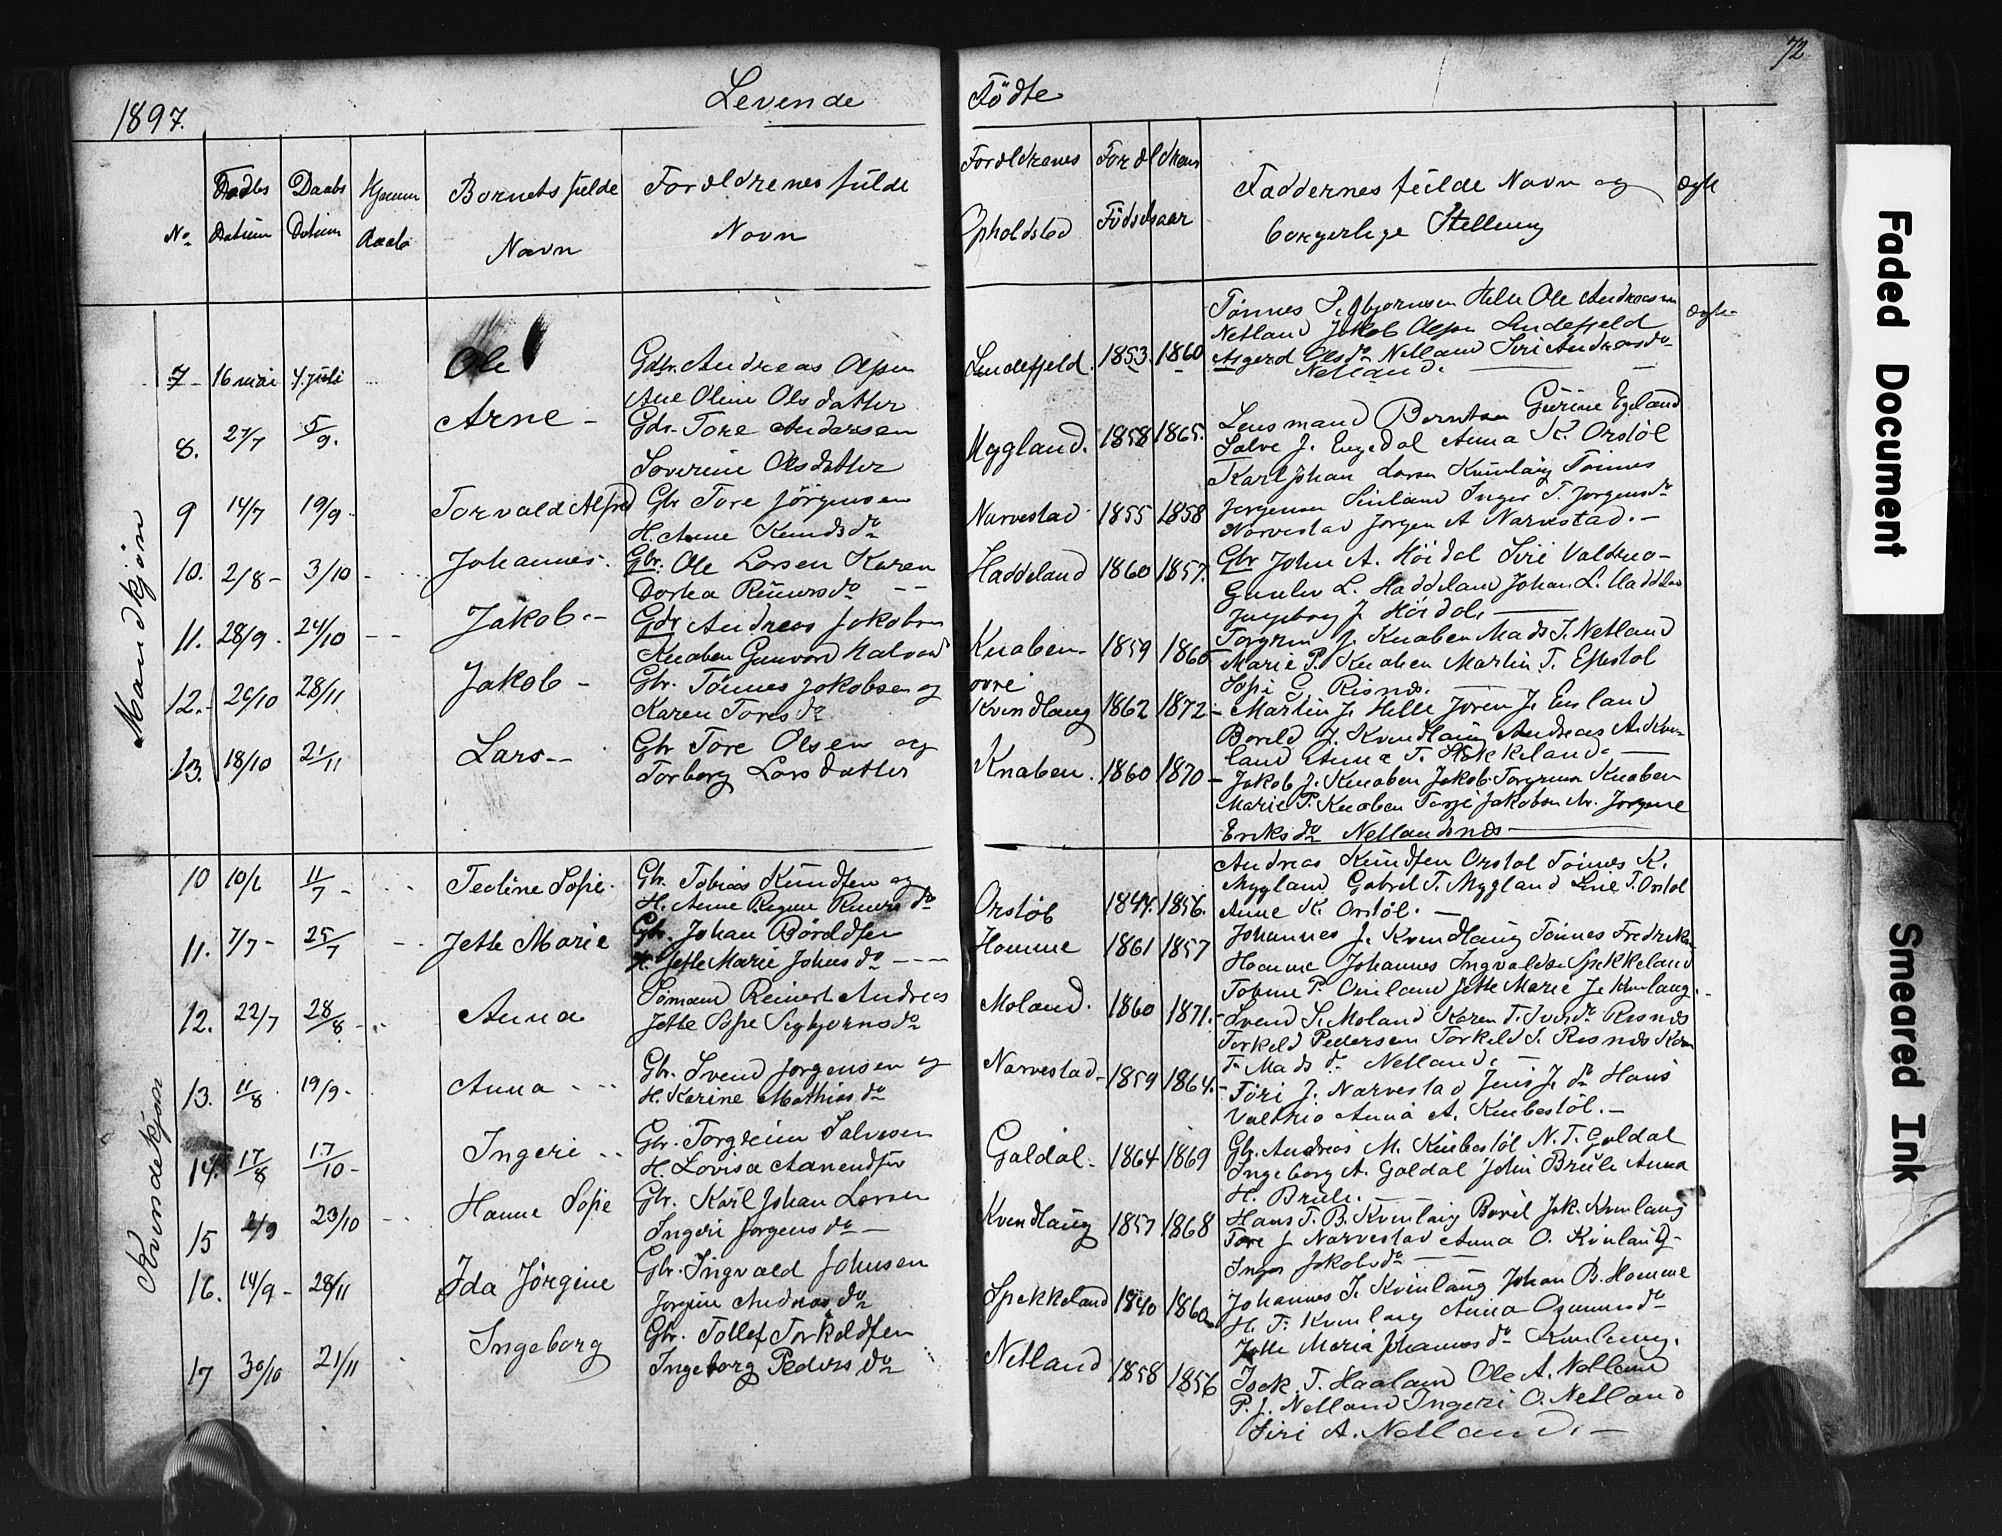 72
1897.
Levende Fødte
No
Fødels Datum
Daabs Datum
Hjemme Daab
Barnets fulde Navn
Forældrenes fulde Navn
Forældrenes Opholdsted
Forældrenes Födselsaar
Faddernes fulde Navn og borgerlige Stelling
Ægte
Mandkjøn
7 - 16 mai 4 juli Ole
Gdbr. Andreas Olsen
Ane Oline Olsdatter
Lindefjeld. 1853. 1860
Tønnes Sigbjørnsen Helle Ole Andreassen
Netland Jakob Olsen Lindefjeld
Asgerd Olsdr Netland Siri Andreasdr
Netland.
Ægte
8. 27/7 5/9. Arne -
Gdr. Tore Andersen
Soverine Olsdatter
Mygland. 1858 1865.
Lensmand Berntsen Gurine Egeland
Salve J. Engedal Anna K. Orstöl
9 14/7 19/9 Torvald Alfred
Gbr Tore Jörgensen
H. Anne Knudsdr
Narvestad 1855 1858
Karl Johan Larsen Kvinlaug Tönnes
Jorgensen Sinland Inger T. Jorgensdr
Narvestad Jorgen A Narvestad. -
10. 2/8 - 3/10 - Johannes.
Gbr. Ole Larsen Karen
Dortea Reinersdr
Haddeland 1860 1857.
Gbr John A. Höidal Siri Valdmo -
Gunlev L. Haddeland Johan L. Haddeland
Ingeborg J. Höidal.
11. 28/9. 24/10 - - Jakob. -
Gdr Andreas Jakobsen
Knaben Gunvord Halvorsd
Knaben - 1859 1860
Torgrim J. Knaben Mads T. Netland
Marie P. Knaben Martin T. Eftestol
Sopi G. Risnes.
12. - 26/10 28/11 Jakob -
Gbr. Tönnes Jakobsen og
Karen Toresdr
ovre
Kvindlaug 1862 1872 -
Martin J. Helle Joren J. Eirland
Boreld J. Kvindlaug Andreas A. Kvin-
land Anna T. Stokkeland. -
13. 18/10 21/11 Lars - -
Gbr Tore Olsen og
Torborg Larsdatter
Knaben. 1860 1870 -
Jakob J. Knaben Jakob Torgrimsen Knaben
Marie P. Knaben Terje Jakobsen Jorgine
Eriksdr Netlandsnes
Kvindekjøn
10 10/6 11/7 - Teoline Sopie.
Gbr. Tobias Knudsen og
H. Anne Regine Reinersdr
Orstöl 1847. 1856.
Andreas Knudsen Orstol Tönnes K.
Mygland Gabrel T. Mygland Line T. Orstol
Anne K. Orstöl. -
11. 7/7 - 25/7 - - Jette Marie
Gbr. Johan Böreldsen
H. Jette Marie Johnsdr - - -
Homme 1861 1857
Johannes J. Kvindlaug Tönnes Fredriksen
Homme Johannes Ingvaldsen Spekkeland
Tobine P. Omland Jette Marie J. Kvinlaug. -
12. 22/7 28/8 - . Anna
Sömand Reinert Andreas
Jette Sopie Sigbjornsdr
Moland. 1860 1871. -
Svend S. Moland Karen T. Risnes
Torkeld Pedersen Torkeld S. Risnes Karen
T. Madsdr Netland.
13. 11/8 19/9 - Anna - -
Gbr. Svend Jorgensen og
H. Karine Mathiasdr
Narvestad - 1859 1864. -
Töri J. Narvestad Jens J. do Hans
Valdmo Anna A. Knibestöl. -
14. 17/8 17/10 - Ingeri - -
Gbr. Torgreim Salvesen
H. Lovisa Aanendsen
Galdal - 1864 1869
Gbr. Andreas M. Knibestöl N. T. Galdal
Ingeborg A. Galdal John Brüle Anna
H. Brüle.
15 2/9 23/10 - . Hanne Sopie
Gbr. Karl Johan Larsen
Ingeri Jorgensdr -
Kvindlaug 1857 1868
Hans T. B. Kvinlaug Borel Jak. Kvinlaug
Tore J Narvestad Anna O. Kvinlaug -
Inger Jakobsdr
16. 14/9 - 28/11 Ida Jörgine
Gbr. Ingvald Johnsen
Jorgine Andreasdr
Spekkeland 1840 1860
Johannes J. Kvinlaug Johan B. Homme
H. T. Kvinlaug Anna Ommundsdr
Jette Maria Johannesdr Kvinlaug.
17 30/10 21/11 . Ingeborg
Gbr. Tollef Torkeldsen
Ingeborg Pedersdr
Netland 1858 1856
T. Haaland Ole A. Netland
P. J. Netland Ingeri O. Netland
Siri A. Netland. -
Faded Document
Smeared Ink